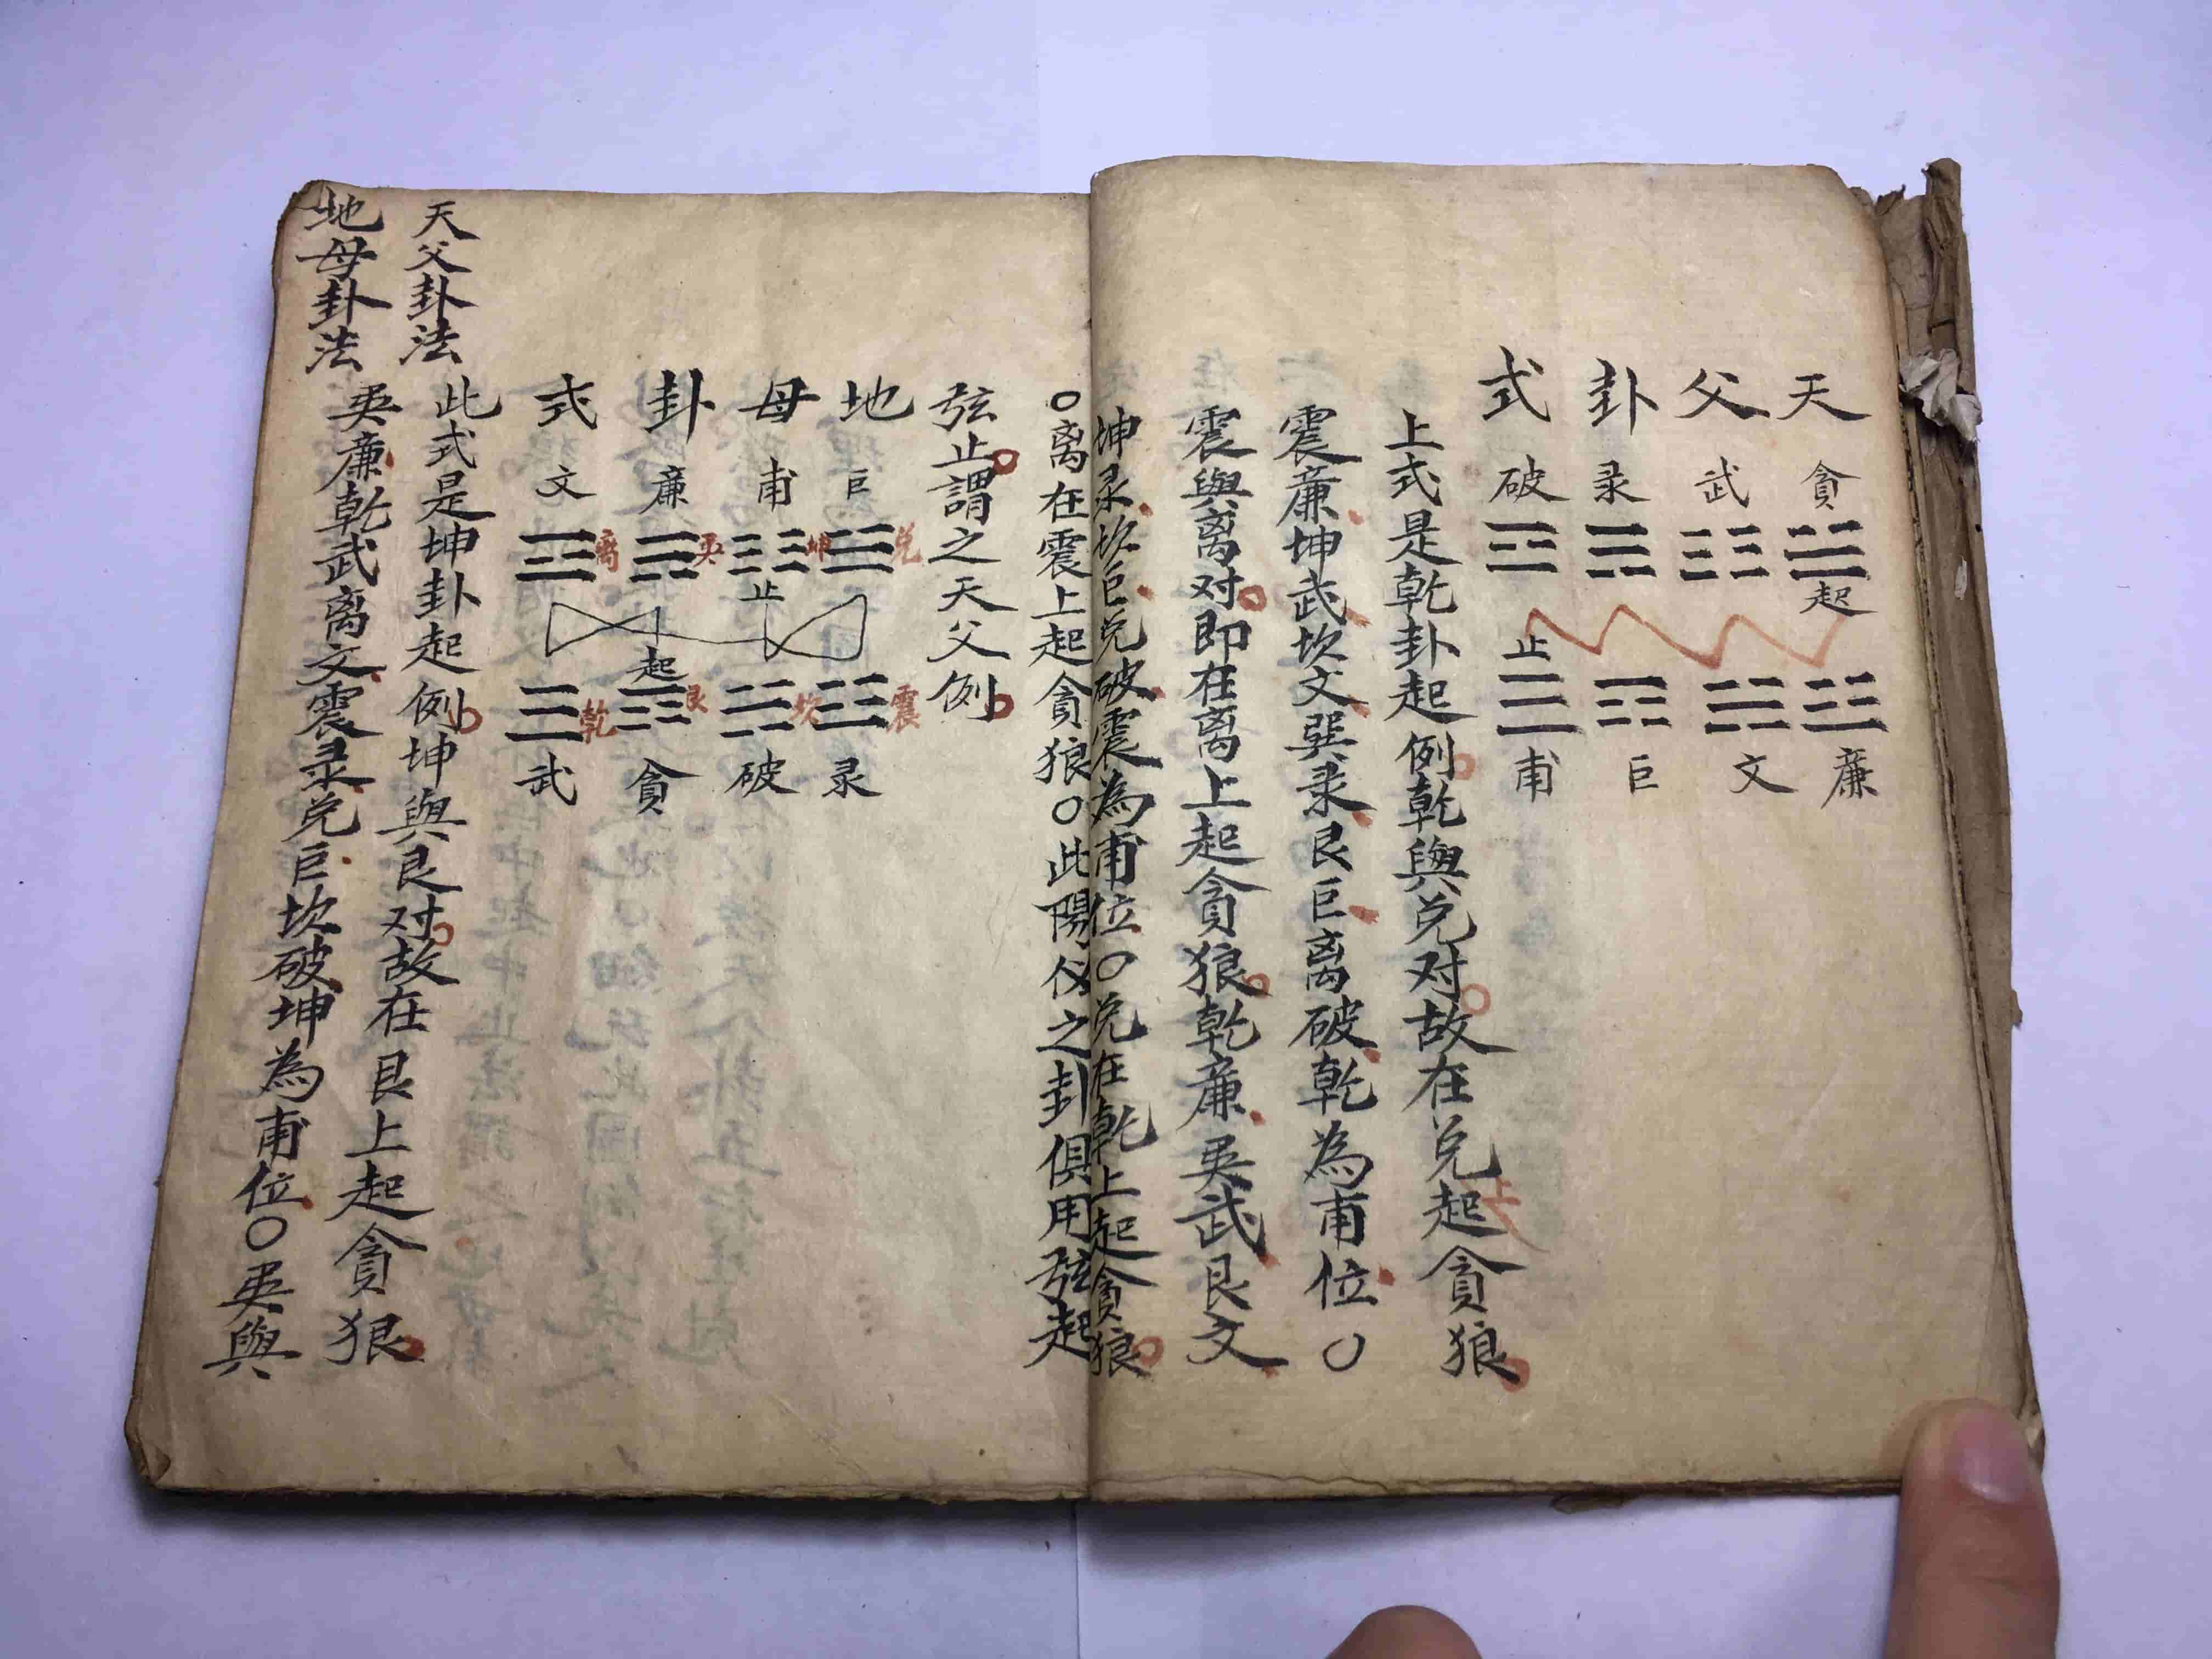 天父卦式
貪武录破
起
止
廉文巨甫
上式是乾卦起例乾與兌对故在兌上起貪狼
震廉坤武坎文巽录艮巨离破乾為甫位〇
震與离对即在离上起貪狼乾廉巽武艮文
坤录坎巨兌破震為甫位〇兌在乾上起貪狼
〇离在震上起貪狼〇此陽仪之卦俱用弦起
弦止謂之天父例
地母卦式
巨甫廉文
兌坤巽离
止
起
震坎艮乾
录破貪武
天父卦法
此式是坤卦起例坤與艮对故在艮上起貪狼
地母卦法
巽廉乾武离文震录兌巨坎破坤為甫位〇巽與